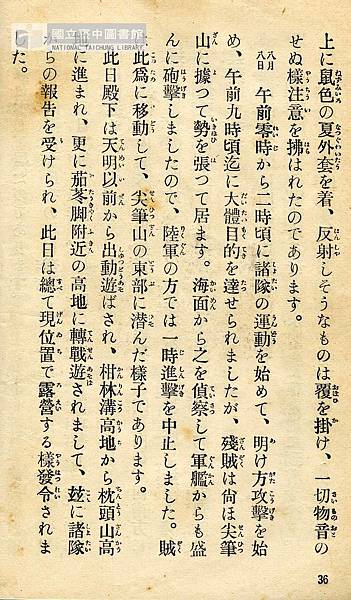 國立臺中圖書館
NATIONAL TAICHUNG LIBRARY
上に鼠色の夏外套を着、反射しそうなものは覆を掛け、一切物音の
せぬ樣注意を拂はれたのであります。
八月八日 午前零時から二時頃に諸隊の運動を始めて、明け方攻擊を始
め、午前九時頃迄に大體目的を達せられましたが、殘賊は尙ほ尖筆
山に據つて勢を張つて居ます。海面から之を偵察して軍艦からも盛
んに砲擊しましたので、陸軍の方では一時進擊を中止しました。賊
此爲に移動して、尖筆山の東部に潜んだ樣子であります。
此日殿下は天明以前から出動遊ばされ、柑林溝高地から枕頭山高
地に進まれ、更に茄苳脚附近の高地に轉戰遊されまして、玆に諸隊
らの報告を受けられ、此日は總て現位置で露營する樣發令されま
した。
36